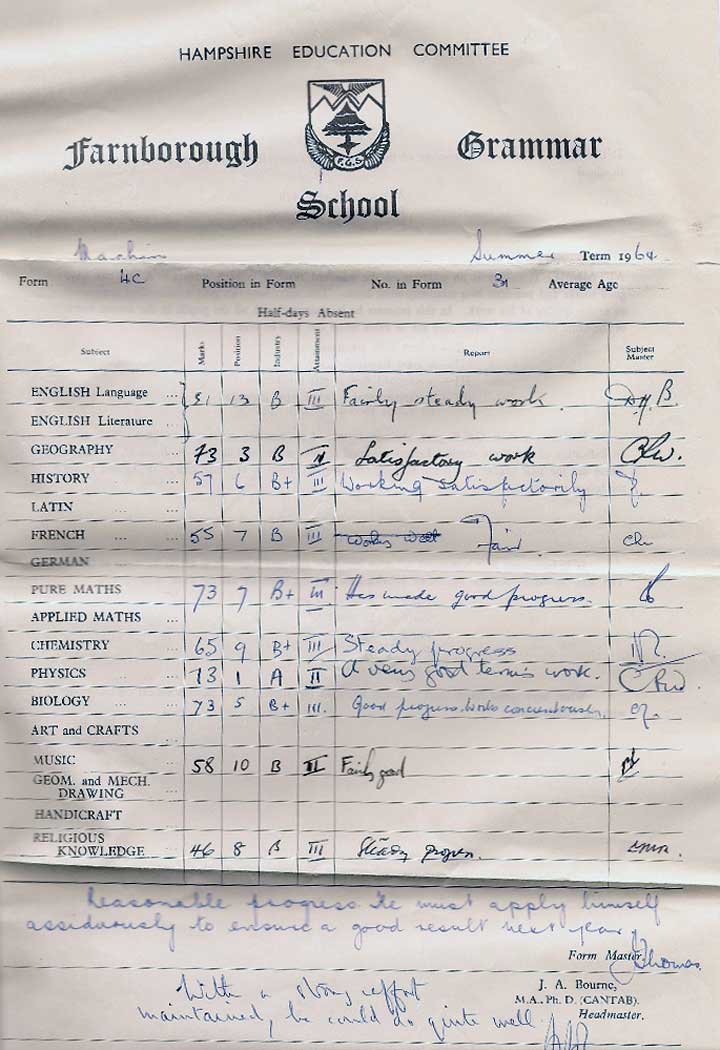 HAMPSHIRE EDUCATION COMMITTEE
F.G.S
Farnborough Grammar
School
Machin Summer Term 1964
Form 4C Position in Form No. in Form 31 Average Age
Half-days Absent
Subject Marks Position Industry Attainment Report Subject Master
ENGLISH Language ... 51 13 B III Fairly steady work.
ENGLISH Literature ...
GEOGRAPHY ... 73 3 B II Satisfactory work
HISTORY ... ... 57 6 B+ III Working satisfactorily
LATIN ... ...
FRENCH ... ... 55 7 B III Works well Fair.
GERMAN ... ...
PURE MATHS ... 73 7 B+ III Has made good progress.
APPLIED MATHS ...
CHEMISTRY ... 65 9 B+ III Steady progress
PHYSICS ... ... 73 1 A II A very good term's work.
BIOLOGY ... ... 73 5 B+ III. Good progress. Works conscientiously.
ART and CRAFTS ...
MUSIC ... ... 58 10 B II Fairly good
GEOM. and MECH.
DRAWING ...
HANDICRAFT ...
RELIGIOUS
KNOWLEDGE ... 46 8 B III Steady progress.
Reasonable progress. He must apply himself
assiduously to ensure a good result next year.
Form Master Thomas.
With a strong effort
maintained, he could do quite well
J. A. Bourne,
M.A., Ph. D. (CANTAB).
Headmaster.